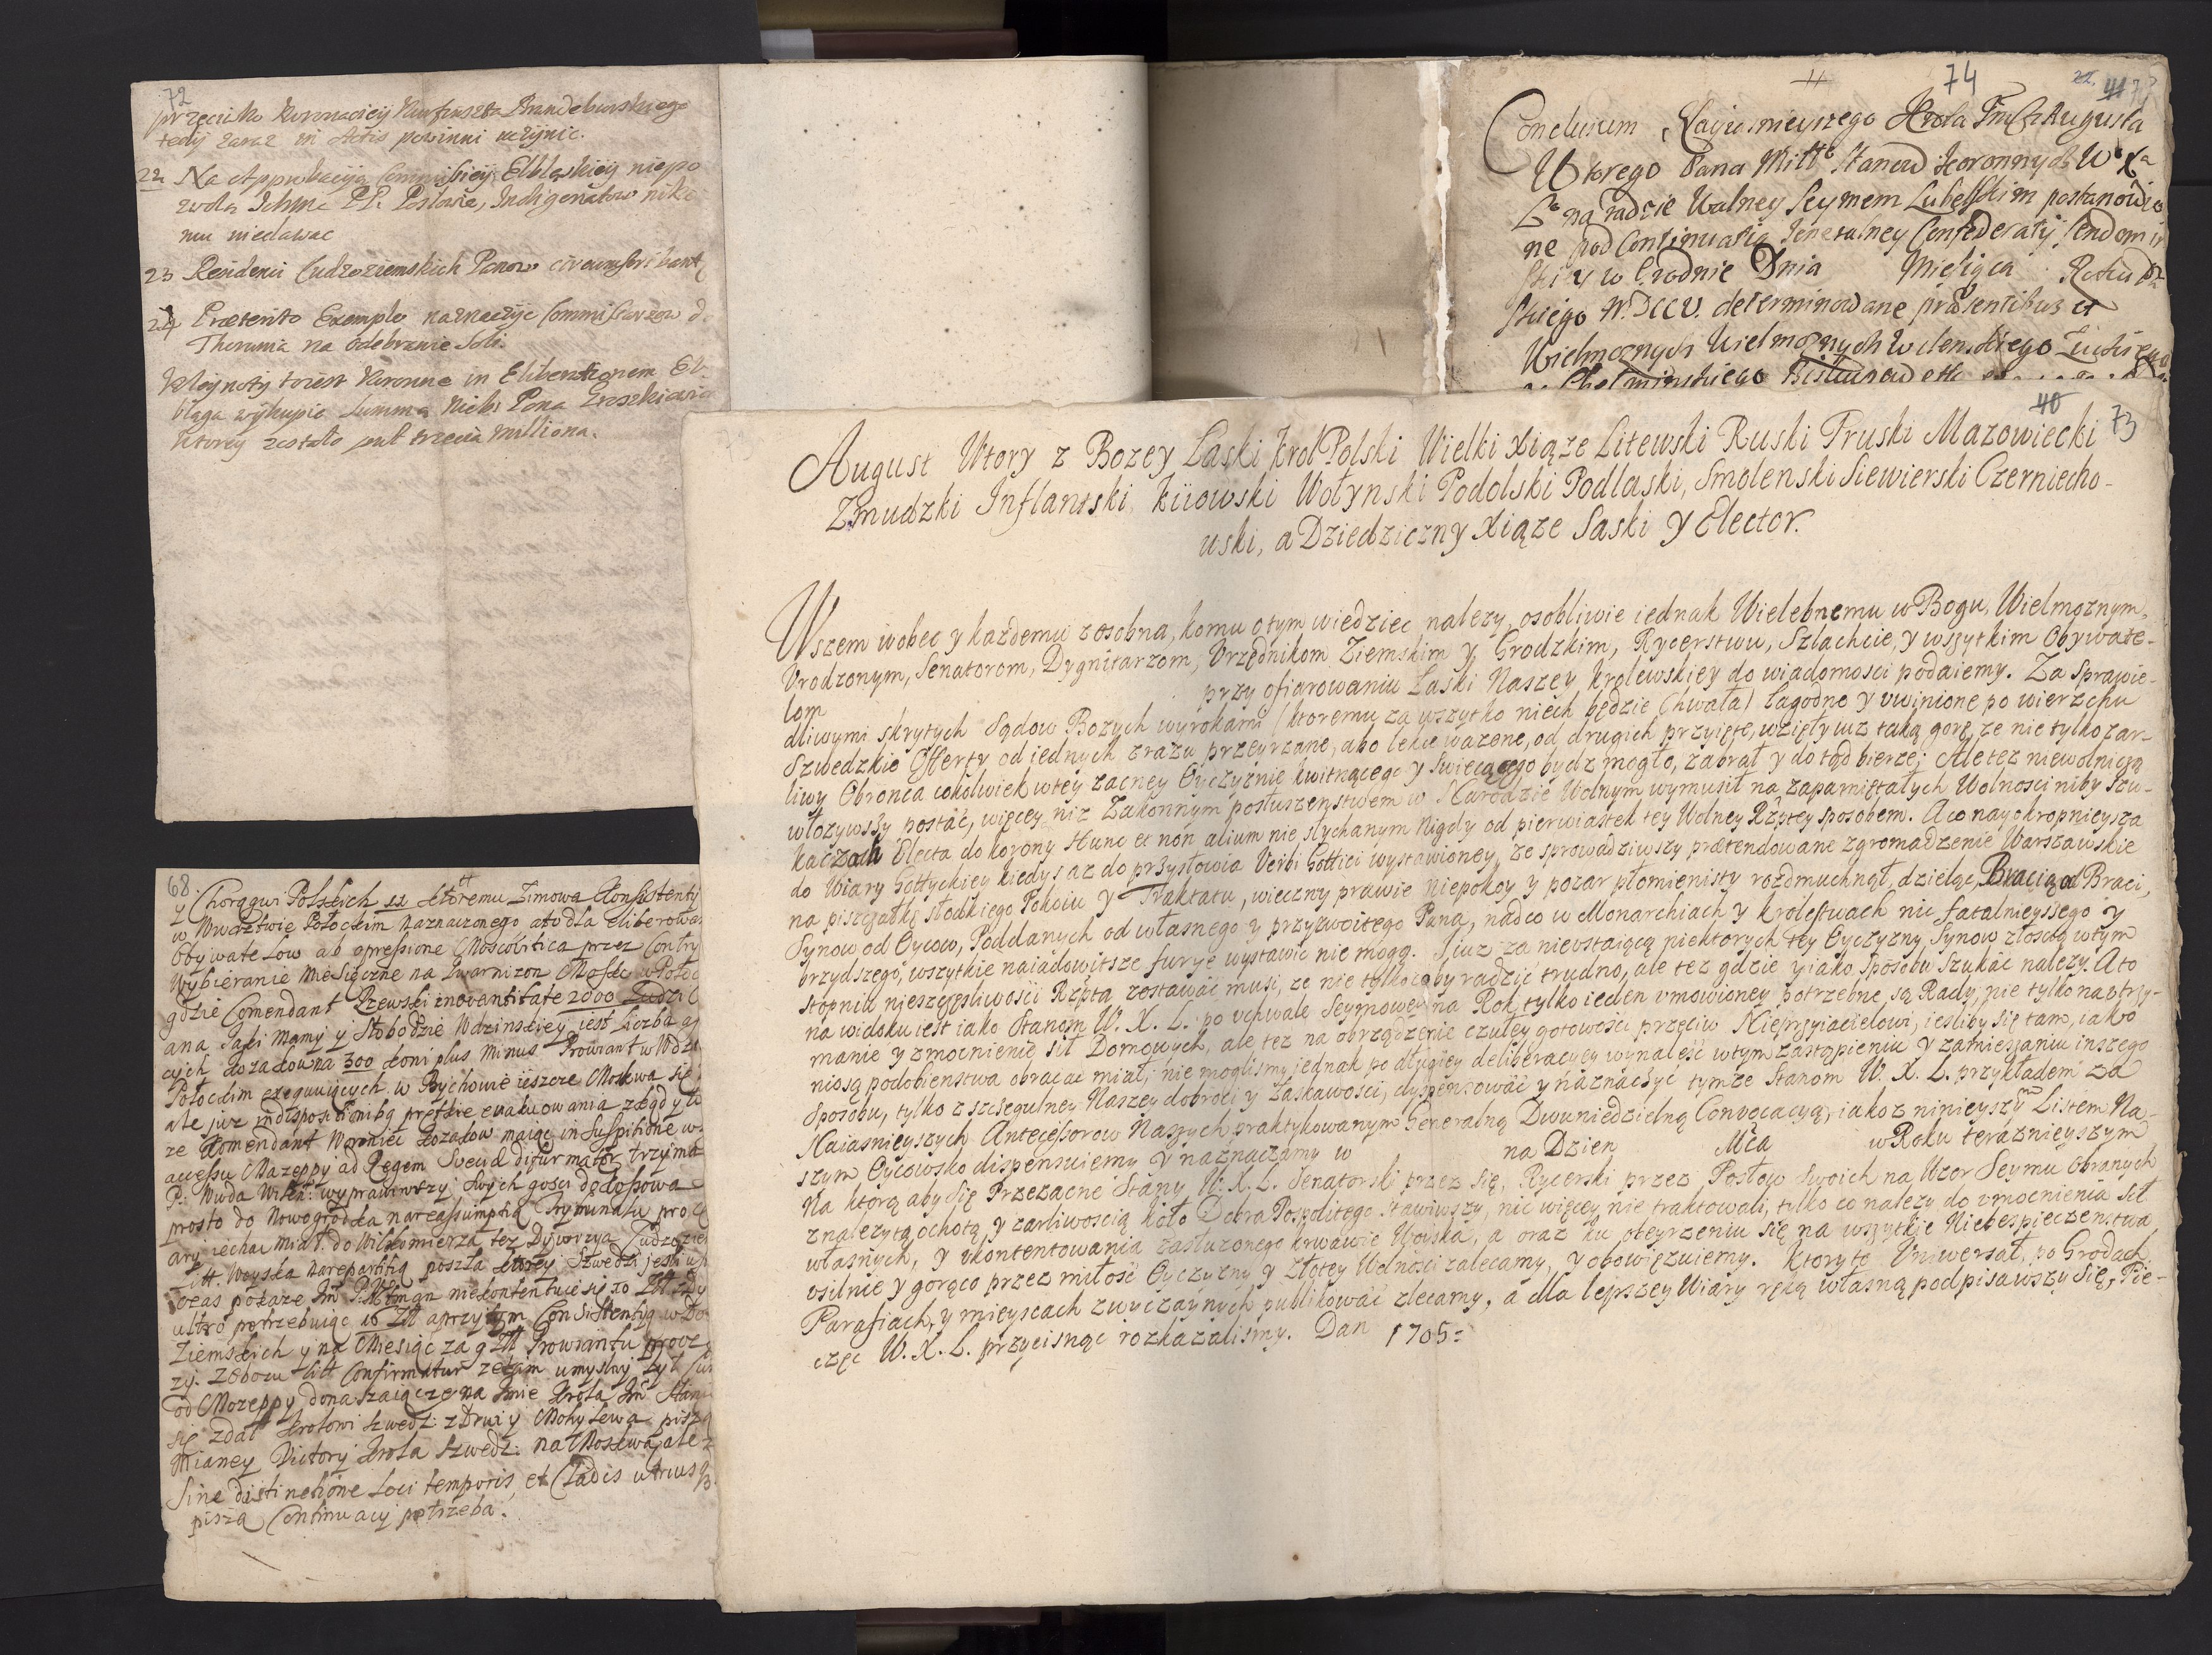 72
przeciwko Koronaciey Kurfirszta Brandeburskiego
tedy zaraz in Actis powinni uczynic.
22 Na Approbacyią Commissiey Elbląskiey niepo
zwolą Ichmc PP. Posłowie, Indigenatow niko
mu niedawac
23 Residenci Cudzoziemskich Panow circumscribant
24 Præterito Exemplo naznaczyc Commissarzow d.
Thorunia na odebranie Soli.
Kleynoty Koronne in Eliberationem El-
bląga wykupic Summa Nieb: Pana
ktorey zostało puł trzecia Milliona.
68.
Z Chorągwi Polskich 11 ktoremu Zimowa Konsistenty
w Wwdztwie Połockim Naznaczonego ato dla eliberowa
Obywatelow ab opressione Moscovitica przez Contry
Wybieranie Miesięczne na Gwarnizon Moskw w Połoc
gdzie Comendant Rzewski in quantitate 2000 Ludzi
ana Saki Mamy y Słobodzie Wdzinskiey iest Liczba
cych Kozakow na 300 koni plus minus Prowiant w Wdz
Połockim exequuiących w Bychowie ieszcze Moskwa się
ale iuz in dispositionibq prętkie evakuowania
ze Komendant Woroniec Kozakow maiąc in Suspitione
accessu Mazeppy ad Regem Sveciæ difirmator trzyma
P: Wwda Wilen: wyprawiwszy Swych gosci
prosto do Nowogrodka na reassumptią Trybunału pro
iechac miał. do Wilkomierza tez Dywizya Cudzozie
Litt. Woyska na repartitią poszła ktorey Szwedzi iesli
czas pokaze Im P. Htman niekontentuie się 10 Złł
ultro potrzebuiąc 16 Złł a przytym Consistentią w Do
Ziemskich y na Miesiąc za 9 Złł Prowiantu
zy. Z Obozu Litt Confirmatur ze tam umyslny był
od Mazeppy donaszaiąc ze na Imie Krola Imci Stani
się zdał Krolowi Szwedz: z Drui y Mohylewa piszą
mianey Victory Krola Szwedz: na Moskwą, ale
Sine distinctione Loci temporis, et Cladis utriusq
piszą Continuacij potrzeba.
74
Conclusum Nayiasnieyszego Krola Imci Augusta
Wtorego Pana Mitto Stanow Koronnych W° Xa
Lo na radzie Walney Seymem Lubelskim postanowio
ne pod Continuatią Generalney Confederatij Sendomir
skiey w Grodnie Dnia Miesiąca Roku
skiego M.DCCV. determinowane præsentibus et
Wielmoznych Wielmoznych Wilenskiego Luckiego
Chełminskiego Biskupow
40 73
August Wtory z Bozey Łaski Krol Polski Wielki Xiąze Litewski Ruski Pruski Mazowiecki
Zmudzki Inflantski, Kiiowski Wołynski Podolski Podlaski, Smolenski Siewierski Czerniecho-
wski, a Dziedziczny Xiąze Saski y Elector.
Wszem wobec y kazdemu zosobna, komu otym wiedziec nalezy, osobliwie iednak Wielebnemu w Bogu, Wielmoznym,
Vrodzonym, Senatorom, Dygnitarzom, Vrzędnikom Ziemskim y Grodzkim, Rycerstwu, Szlachcie, y wszytkim Obywate-
lom przy ofiarowaniu Łaski Naszey Krolewskiey do wiadomosci podaiemy. Za Sprawie-
dliwymi skrytych Sądow Bozych wyrokami (ktoremu za wszytko niech będzie Chwała) Łagodne y vwinione po wierzchu
Szwedzkie Offerty od iednych zrazu przeyrzane, abo lekce wazone, od drugich przyięte, wzięły iuz taką gorę, ze nie tylko zar-
liwy Obronca cokolwiek w tey zacney Oyczyznie kwitnącego y swiecącego bydz mogło, zabrał y do tąd bierze; Ale tez niewolniczą
włozywszy postać, więcey niz Zakonnym posłuszenstwem w Narodzie Wolnym wymusił na zapamiętałych Wolnosci niby szu-
kaczach Electa do Korony Hunc et non alium nie słychanym Nigdy od pierwiastek tey Wolney Rzptey sposobem. A co nayokropnieysza
do Wiary Gottyckiey kiedys az do przysłowia Verbi Gottici wystawioney, ze sprowadziwszy prætendowane zgromadzenie Warszawskie
na piszczałkę słodkiego Pokoiu y Traktatu, wieczny prawie niepokoy y pozar płomienisty rozdmuchnął, dzieląc Bracią od Braci,
Synow od Oycow, Poddanych od własnego y przyzwoitego Pana, nad co w Monarchiach y Krolestwach nic fatalnieyszego y
brzydszego, wszytkie naiadowitsze furye wystawic nie mogą. I iuz za nievstaiącą niektorych tey Oyczyzny Synow złoscią w tym
stopniu nieszczęsliwosci Rzpta zostawac musi, ze nie tylko iąby radzic trudno, ale tez gdzie y iako sposobu szukac nalezy. A to
na widoku iest iako Stanom W. X. L. po vchwale Seymowey na Rok tylko ieden vmowioney potrzebne są Rady, nie tylko na vtrzy-
manie y zmocnienie sił Domowych, ale tez na obrządzenie czułey gotowosci przeciw Nieprzyiacielowi, iesliby się tam, iako
niosą podobienstwa obracac miał; nie moglismy iednak po długiey deliberacyey wynalesc w tym zastąpieniu y zamieszaniu inszego
Sposobu, tylko z szczegulney Naszey dobroci y Łaskawosci, dyspensować y naznaczyć tymze Stanom W. X. L. przykładem za
Naiasnieyszych Antecessorow Naszych praktykowanym Generalną Dwuniedzielną Convocacyą; iakoz ninieyszym Listem Na-
szym Oycowsko dispensuiemy y naznaczamy w na Dzien Mca w Roku teraznieyszym
Na ktorą aby się Przezacne Stany W. X. L. Senatorski przez się, Rycerski przez Posłow Swoich na Wzor Seymu Obranych
z nalezytą ochotą y zarliwoscią koło Dobra Pospolitego stawiwszy, nic więcey nie traktowali, tylko co nalezy do vmocnienia sił
własnych, y vkontentowania zasłuzonego krwawie Woyska, a oraz ku obeyrzeniu się na wszytkie Niebespieczenstwa,
vsilnie y gorąco przez miłość Oyczyzny y Złotey Wolnosci zalecamy, y obowięzuiemy. Ktoryto Vniwersał, po Grodach,
Parafiach, y mieyscach zwyczaynych publikować zlecamy, a dla lepszey Wiary ręką własną podpisawszy się, Pie-
częć W. X. L. przycisnąc rozkazalismy. Dan 1705